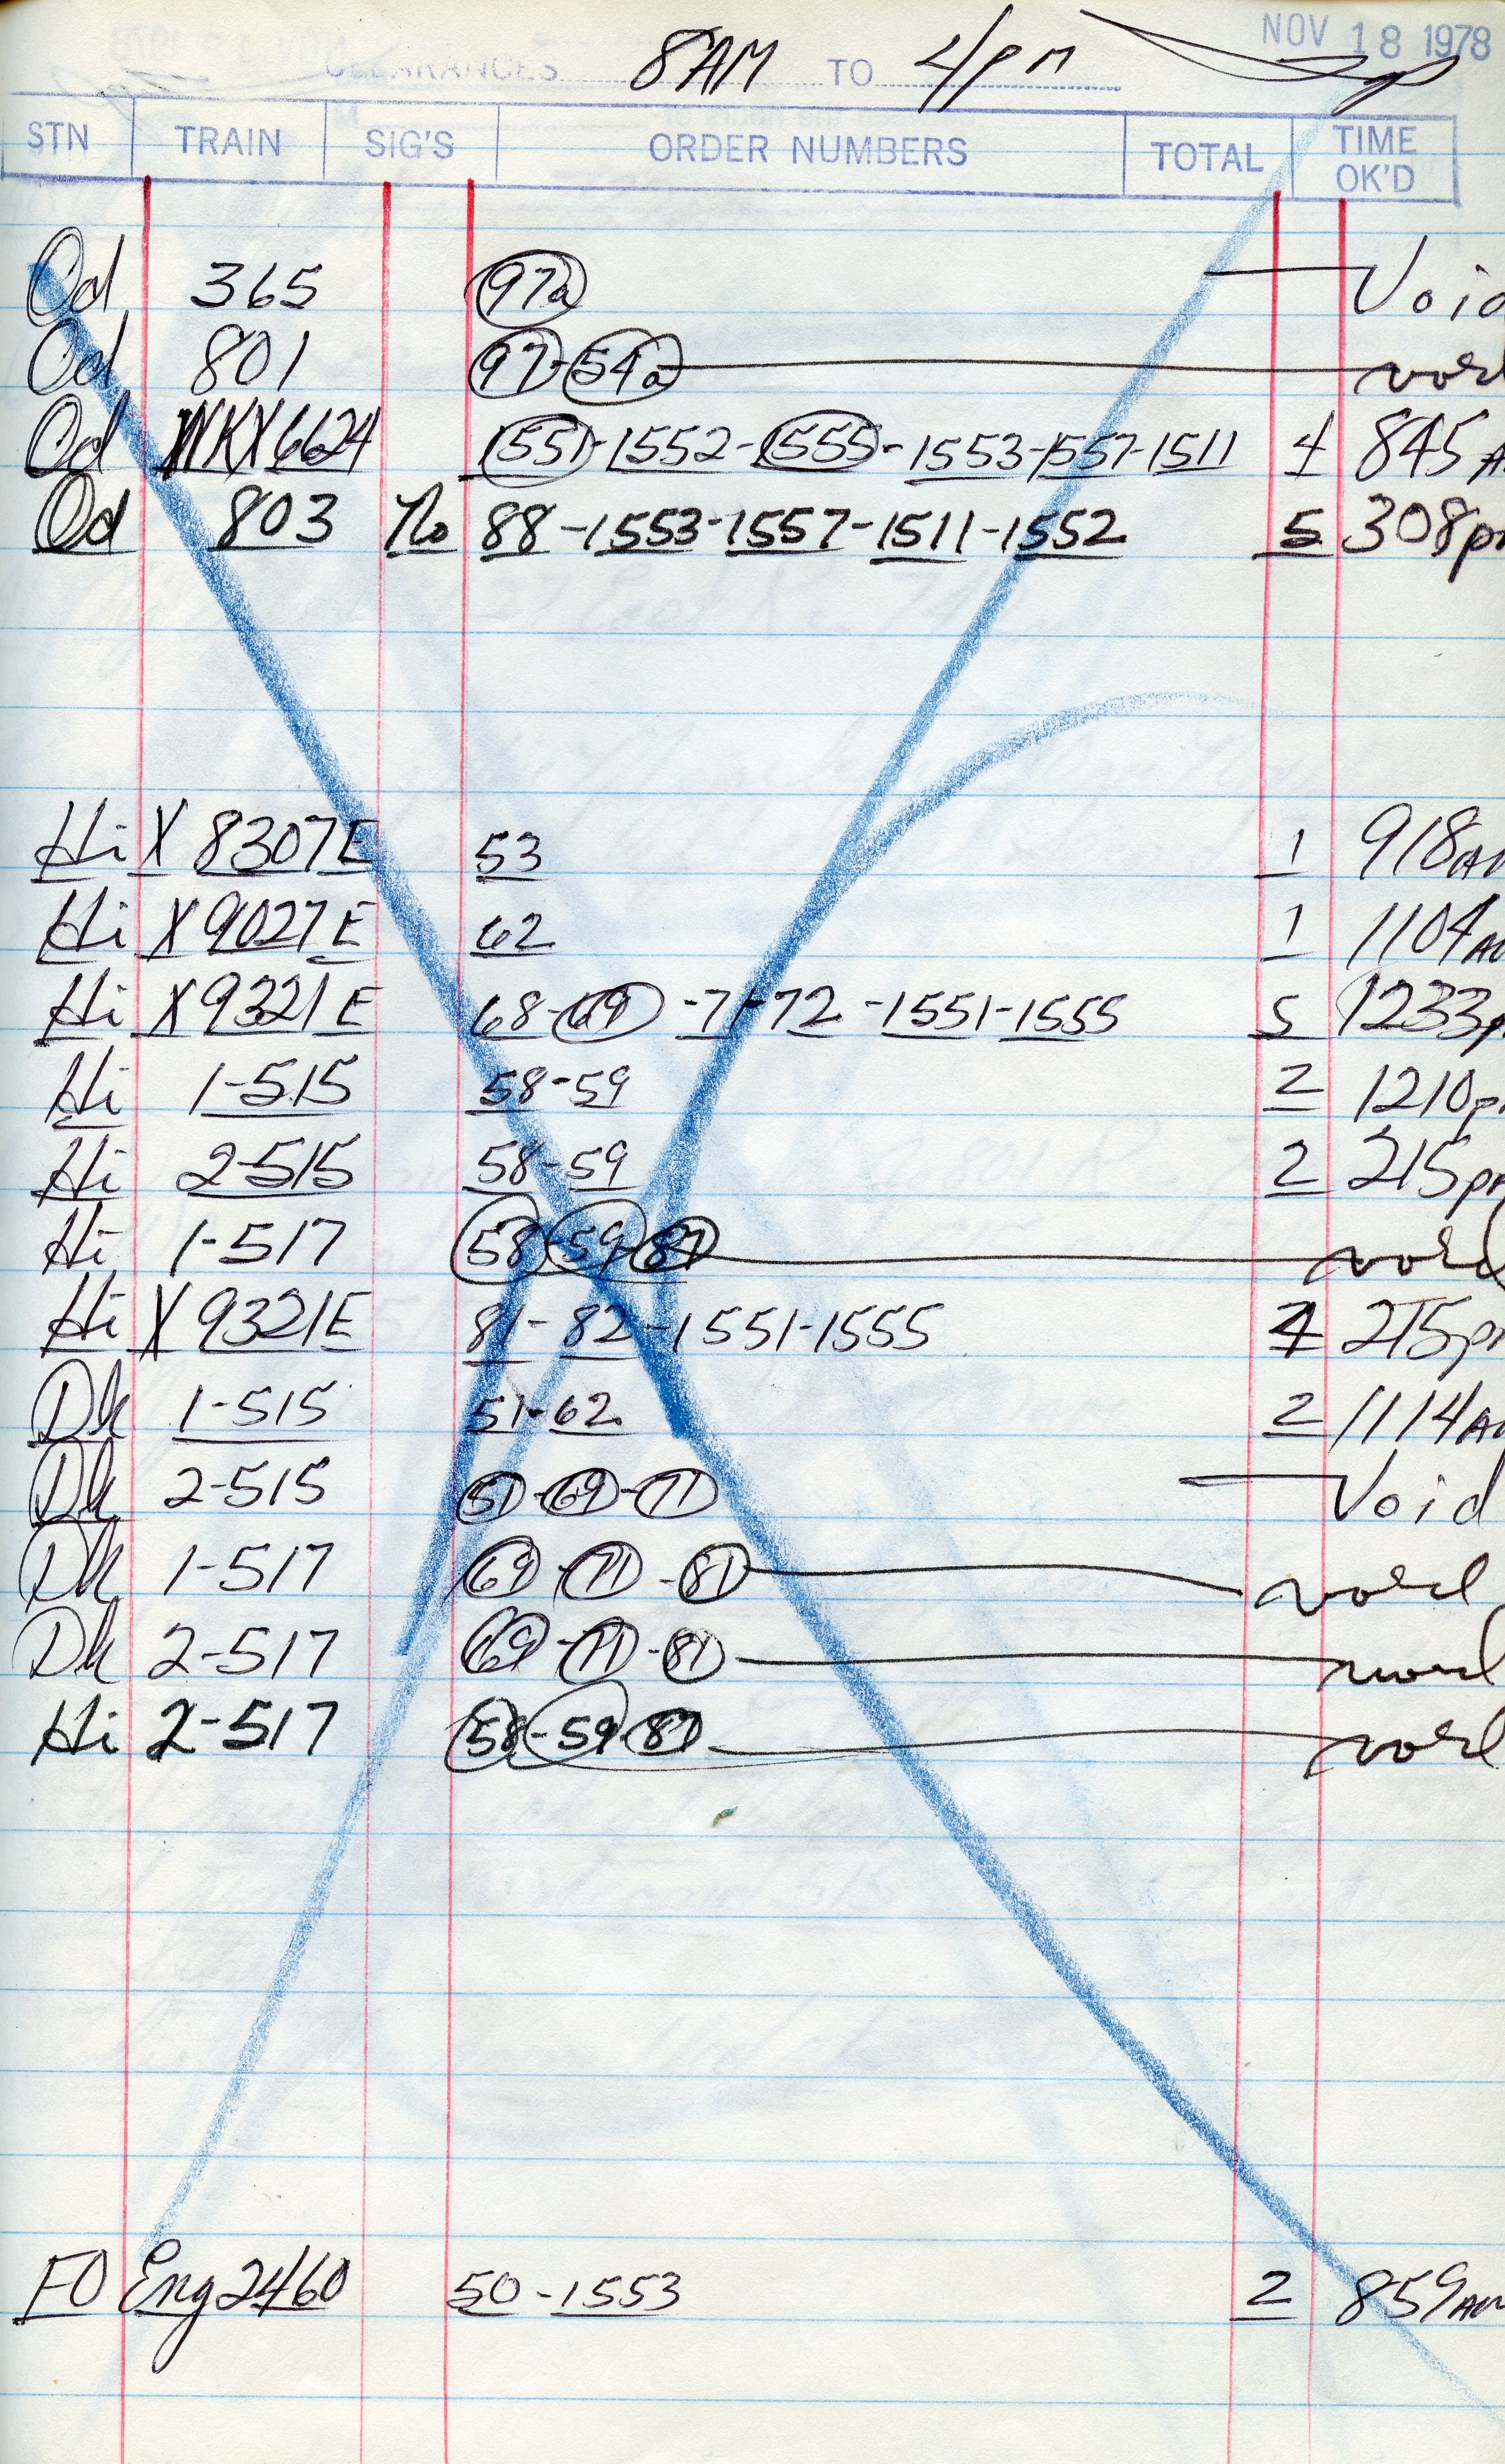 NOV 18 1978
CLEARANCES 8AM TO 4pm
STN TRAIN SIG'S ORDER NUMBERS TOTAL TIME OK'D
Od 365 97a Void
Od 801 97-54a void
Od WKX6624 1551-1552-1555-1553-1557-1511 4 845 A
Od 803 No 88-1553-1557-1511-1552 5 308pm
Hi X 8307E 53 1 918AM
Hi X 9027E 62 1 1104AM
Hi X9321E 68-69-71-72-1551-1555 5 1233p
Hi 1-515 58-59 2 1210pm
Hi 2-515 58-59 2 215pm
Hi 1-517 58-59-87 void
Hi X 9321E 81-82-1551-1555 4 215pm
Dk 1-515 51-62 2 1114AM
Dk 2-515 51-69-71 Void
Dk 1-517 69-71-81 void
Dk 2-517 69-71-81 void
Hi 2-517 58-59-87 void
FO Eng2460 50-1553 2 859AM